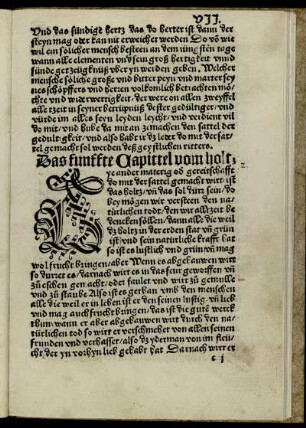 VII.
Vnd das sündige hertz das do herter ist dann der
steyn mag oder kan nit erweichet werden Do võ wie
wil ein solicher mensch besteen an dem iüngstẽn tage
wann alle elementen vñ sein groß hertigkeit vnnd
sünde gezeügknüß vber yn werden geben. Welcher
mensche soliche große vnd bitter peyn vnd marter seynes
schöpffers vnd herzen volkomlich betrachten möchte
vnd widerwertigkeit, der were on allen zweyffel
alle zeit in seyner betrüpnüß dester gedültiger, vnd
würde im alles seyn leyden leycht, vnd verdient vil
do mit, vnd hube da mit an zmachen den sattel der
gedultgkeit vnd also habt ir dz leder do mit der sattel
gemacht sol werden deß geystlichen ritters.
Das fünffte Capittel vom holtz
ye ander materig oð gereitschafft
do mit der sattel gemacht wirt ist
das holtz, vñ das sol dürr sein, do
bey mögen wir versteen den natürlichen
todt, den wir allzeit bedencken
söllen, dann alle die weil
dz holtz in der erden stat vñ grün
ist, vnd sein natürliche krafft hat
so ist es lustlich vnd grün vñ mag
wol frucht bringen, aber Wenn es abgehauwen wirt
so dürret es, darnach wirt es in das feur geworffen vñ
zu eschen gen acht, oder faulet vnd wirt zu gemülle
vnd zu staube Also ist es gethan vmb den menschen
alle die weil er in leben ist
bum wann er aber abgehauwen wirt durch den natürlichen
tod so wirt er verschmehet von allen seinen
freunden vnd verhasset, also dz yderman von im fleücht,
der yn vorhyn lieb gehabt hat Darnach wirt er
c j